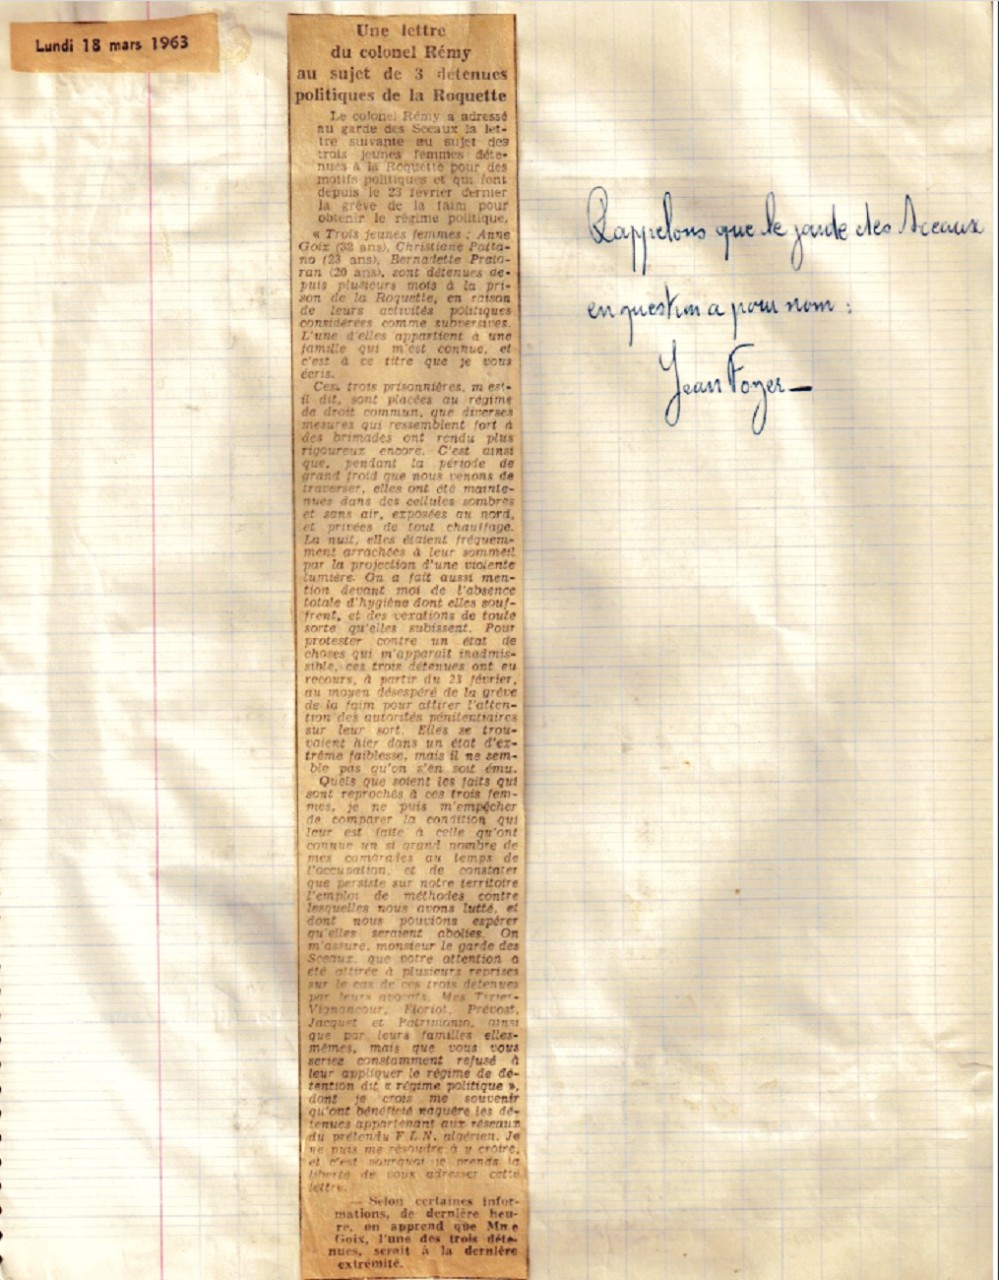 Lundi 18 mars 1963
Une lettre
du colonel Rémy
au sujet de 3 détenues
politiques de la Roquette
Le colonel Rémy a adressé
au garde des Sceaux la let-
tre suivante au sujet des
trois jeunes femmes déte-
nues à la Roquette pour des
motifs politiques et qui font
depuis le 23 février dernier
la grève de la faim pour
obtenir le régime politique.
« Trois jeunes femmes : Anne
Goix (32 ans), Christiane Patta-
no (23 ans), Bernadette Prato-
ran (20 ans), sont détenues de-
puis plusieurs mois à la pri-
son de la Roquette, en raison
de leurs activités politiques
considérées comme subversives.
L'une d'elles appartient à une
famille qui m'est connue, et
c'est à ce titre que je vous
écris.
Ces trois prisonnières, m'est-
il dit, sont placées au régime
de droit commun, que diverses
mesures qui ressemblent fort à
des brimades ont rendu plus
rigoureux encore. C'est ainsi
que, pendant la période de
grand froid que nous venons de
traverser, elles ont été mainte-
nues dans des cellules sombres
et sans air, exposées au nord,
et privées de tout chauffage.
La nuit, elles étaient fréquem-
ment arrachées à leur sommeil
par la projection d'une violente
lumière. On a fait aussi men-
tion devant moi de l'absence
totale d'hygiène dont elles souf-
frent, et des vexations de toute
sorte qu'elles subissent. Pour
protester contre un état de
choses qui m'apparaît inadmis-
sible, ces trois détenues ont eu
recours, à partir du 23 février,
au moyen désespéré de la grève
de la faim pour attirer l'atten-
tion des autorités pénitentiaires
sur leur sort. Elles se trou-
vaient hier dans un état d'ex-
trême faiblesse, mais il ne sem-
ble pas qu'on s'en soit ému.
Quels que soient les faits qui
sont reprochés à ces trois fem-
mes, je ne puis m'empêcher
de comparer la condition qui
leur est faite à celle qu'ont
connue un si grand nombre de
mes camarades au temps de
l'occupation, et de constater
que persiste sur notre territoire
l'emploi de méthodes contre
lesquelles nous avons lutté, et
dont nous pouvions espérer
qu'elles seraient abolies. On
m'assure, monsieur le garde des
Sceaux, que votre attention a
été attirée à plusieurs reprises
sur le cas de ces trois détenues
par leurs avocats, Mes Tixier-
Vignancour, Floriot, Prévost,
Jacquet et Patrimonio, ainsi
que par leurs familles elles-
mêmes, mais que vous vous
seriez constamment refusé à
leur appliquer le régime de dé-
tention dit « régime politique »,
dont je crois me souvenir
qu'ont bénéficié naguère les dé-
tenues appartenant aux réseaux
du prétendu F.L.N. algérien. Je
ne puis me résoudre à y croire,
et c'est pourquoi je prends la
liberté de vous adresser cette
lettre.
— Selon certaines infor-
mations, de dernière heu-
re, on apprend que Mme
Goix, l'une des trois déte-
nues, serait à la dernière
extrémité.
Rappelons que le garde des Sceaux
en question a pour nom :
Jean Foyer —